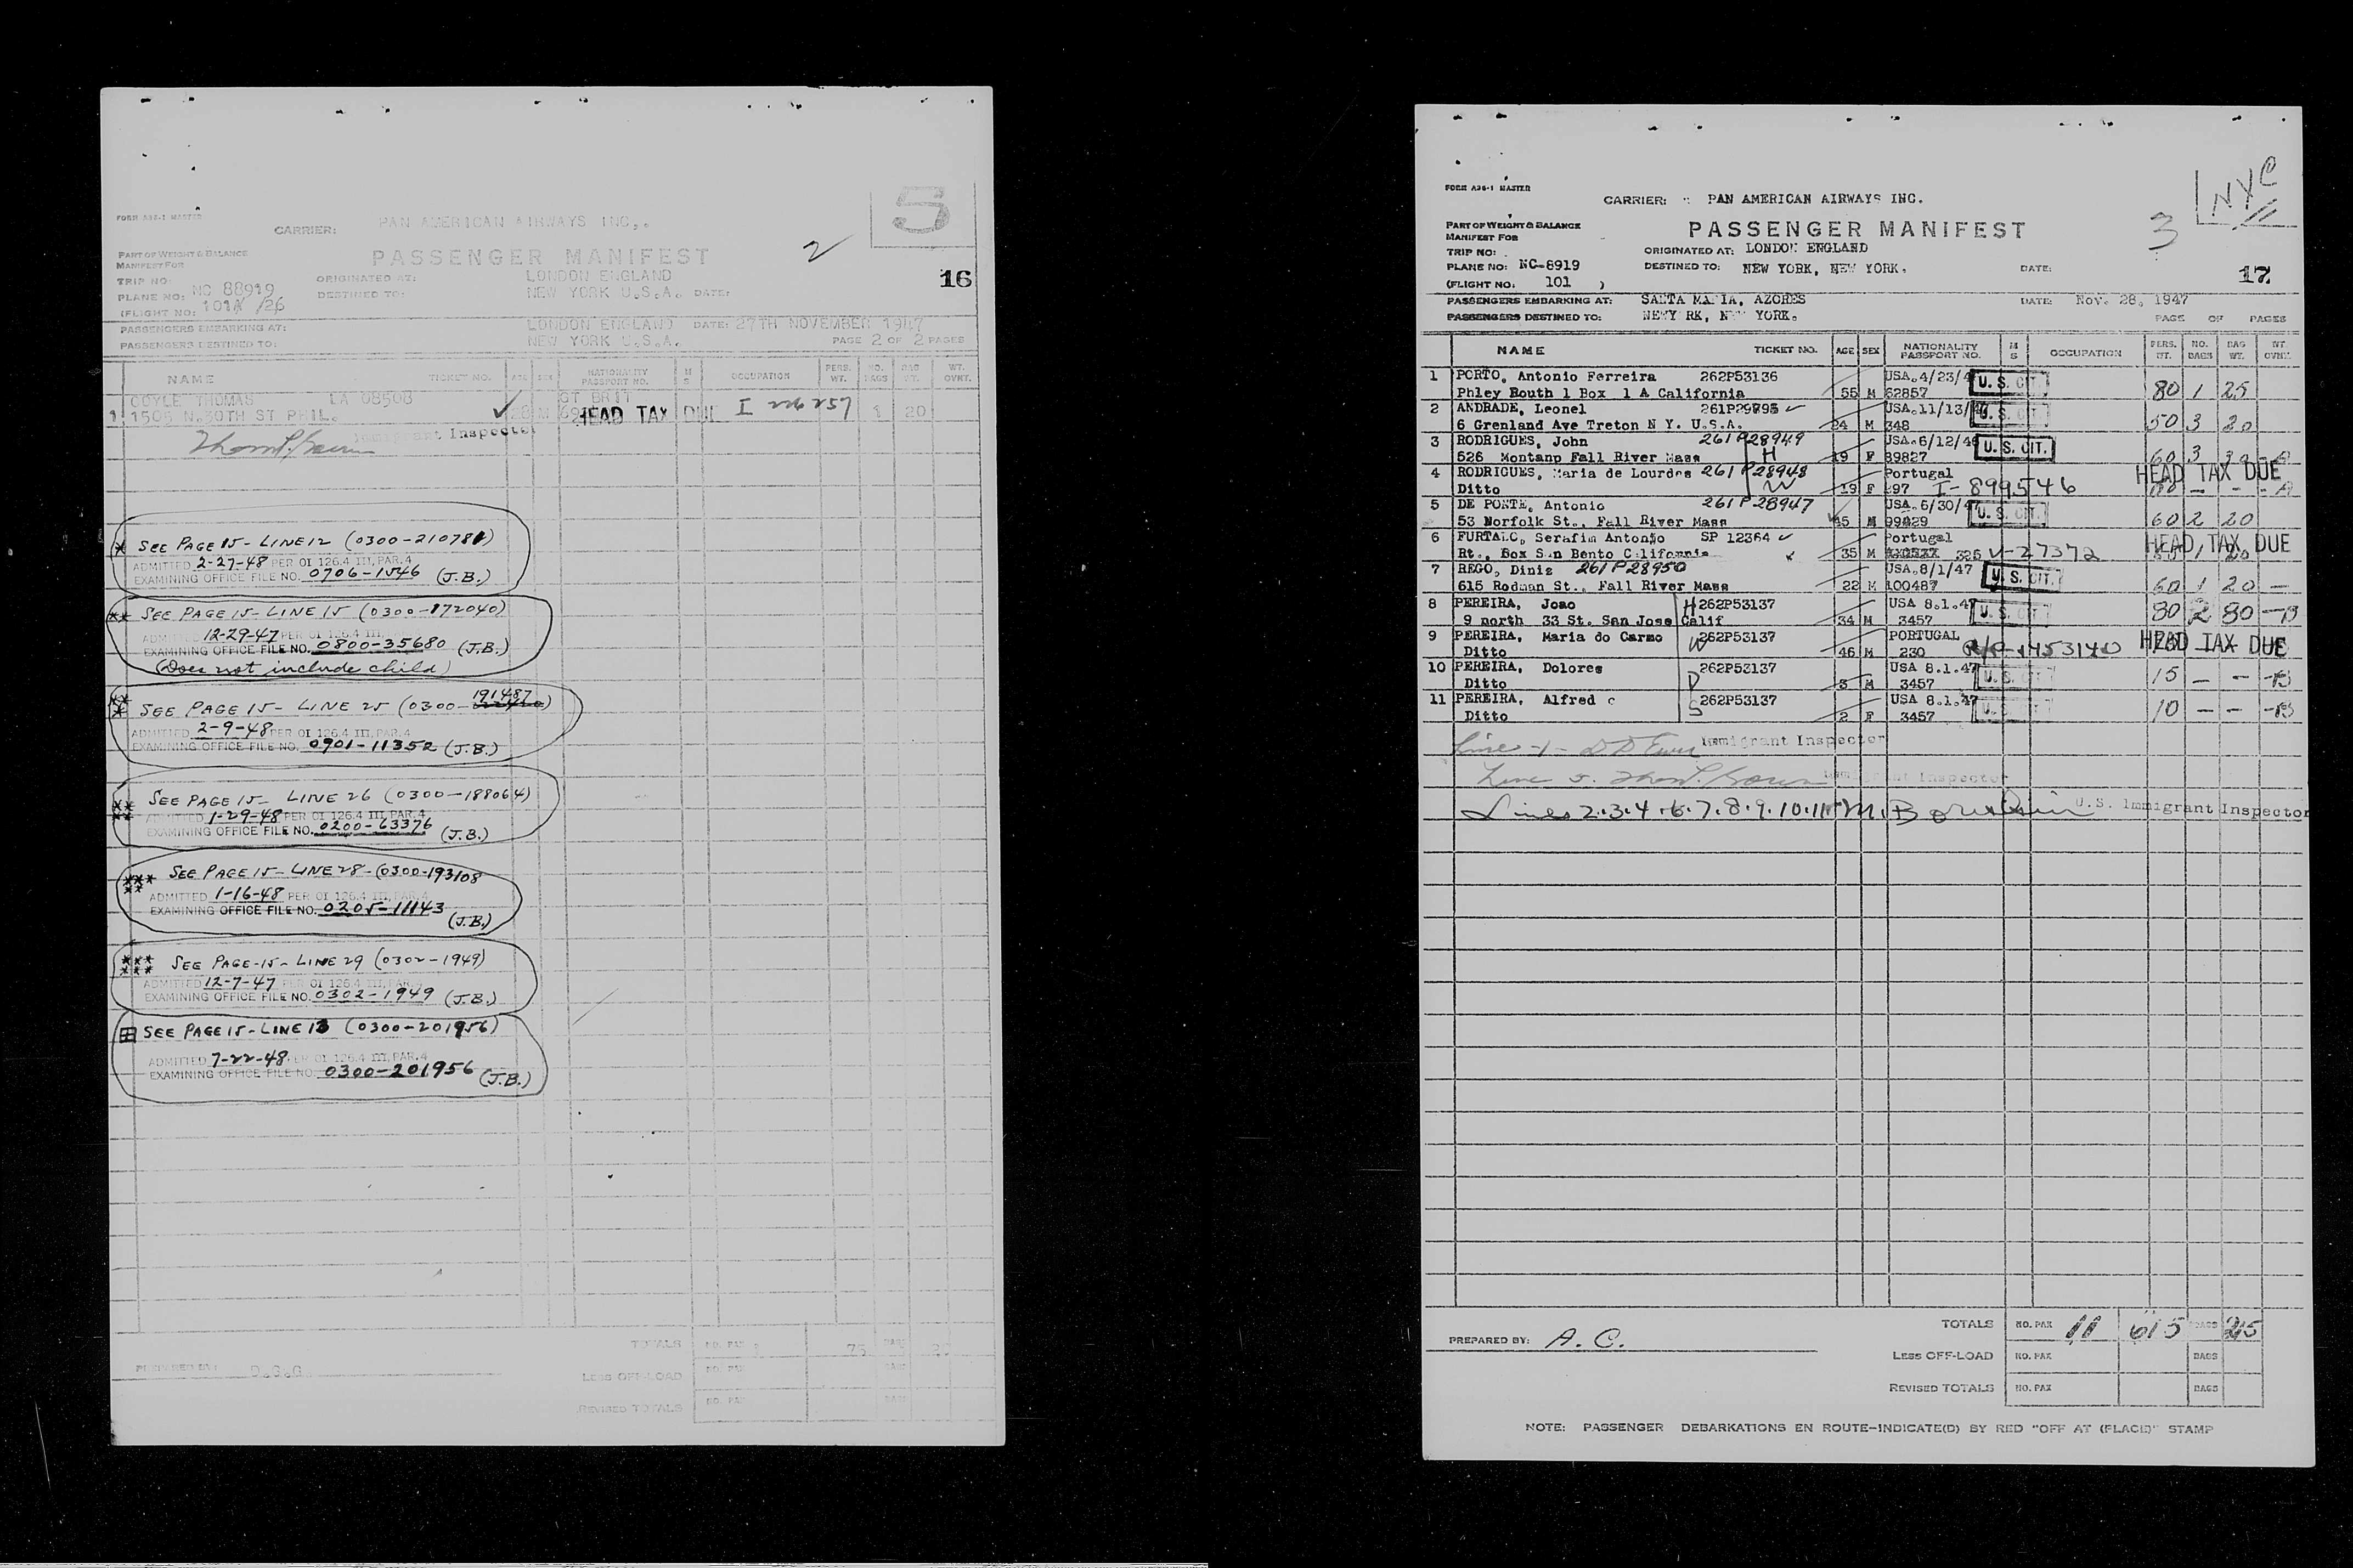 5
FORM A26-1 MASTER
CARRIER: PAN AMERICAN AIRWAYS INC.
2
PART OF WEIGHT & BALANCE
MANIFEST FOR
PASSENGER MANIFEST
16
TRIP NO:
ORIGINATED AT: LONDON ENGLAND
PLANE NO: NC 88919
DESTINED TO: NEW YORK U.S.A. DATE:
(FLIGHT NO: 101A /26
PASSENGERS EMBARKING AT: LONDON ENGLAND DATE: 27TH NOVEMBER 1947
PASSENGERS DESTINED TO: NEW YORK U.S.A. PAGE 2 OF 2 PAGES
NAME TICKET NO. AGE SEX NATIONALITY PASSPORT NO. M S OCCUPATION PERS. WT. NO. BAGS BAG WT. WT. OVNT.
COYLE THOMAS LA 08508 GT BRIT
1 1505 N.30TH ST PHIL. 28 M HEAD TAX DUE I 226257 1 20
Immigrant Inspector
* SEE PAGE 15 - LINE 12 (0300-210781)
ADMITTED 2-27-48 PER OI 126.4 III, PAR.4
EXAMINING OFFICE FILE NO. 0706-1546 (J.B.)
** SEE PAGE 15 - LINE 15 (0300-172040)
ADMITTED 12-29-47 PER OI 126.4 III,
EXAMINING OFFICE FILE NO. 0800-35680 (J.B.)
(Does not include child)
*** SEE PAGE 15 - LINE 25 (0300-191487)
ADMITTED 2-9-48 PER OI 126.4 III, PAR.4
EXAMINING OFFICE FILE NO. 0901-11352 (J.B.)
**** SEE PAGE 15 - LINE 26 (0300-188064)
ADMITTED 1-29-48 PER OI 126.4 III, PAR.4
EXAMINING OFFICE FILE NO. 0200-63376 (J.B.)
***** SEE PAGE 15 - LINE 28 - (0300-193108
ADMITTED 1-16-48 PER OI 126.4 III, PAR.4
EXAMINING OFFICE FILE NO. 0205-11143
(J.B.)
****** SEE PAGE-15 - LINE 29 (0302-1949)
ADMITTED 12-7-47 PER OI 126.4 III, PAR.4
EXAMINING OFFICE FILE NO. 0302-1949 (J.B.)
SEE PAGE 15 - LINE 13 (0300-201956)
ADMITTED 7-22-48 PER OI 126.4 III, PAR.4
EXAMINING OFFICE FILE NO. 0300-201956 (J.B.)
TOTALS NO. PAX 1 75 BAGS 20
PREPARED BY: D.S.G.
LESS OFF-LOAD NO. PAX BAGS
REVISED TOTALS NO. PAX BAGS
NYC
FORM A26-1 MASTER
CARRIER: PAN AMERICAN AIRWAYS INC.
3
PART OF WEIGHT & BALANCE
MANIFEST FOR
PASSENGER MANIFEST
TRIP NO:
ORIGINATED AT: LONDON ENGLAND
PLANE NO: NC-8919
DESTINED TO: NEW YORK, NEW YORK. DATE:
17
(FLIGHT NO: 101 )
PASSENGERS EMBARKING AT: SANTA MARIA, AZORES DATE: Nov. 28, 1947
PASSENGERS DESTINED TO: NEWY RK, NEW YORK. PAGE OF PAGES
NAME TICKET NO. AGE SEX NATIONALITY PASSPORT NO. M S OCCUPATION PERS. WT. NO. BAGS BAG WT. WT. OVNT.
1 PORTO, Antonio Ferreira 262P53136 USA.4/23/4 U. S. CIT.
Phley Bouth 1 Box 1 A California 55 M 62857 80 1 25
2 ANDRADE, Leonel 261P29895 USA.11/13/ U. S. CIT.
6 Grenland Ave Treton N Y. U.S.A. 24 M 348 50 3 20
3 RODRIGUES, John 261P28949 USA.6/12/46 U. S. CIT.
526 Montanp Fall River Mass H F 89827 60 3
4 RODRIGUES, Maria de Lourdes 261P28948 Portugal HEAD TAX DUE
Ditto W 19 F 197 I-899546
5 DE PONTE, Antonio 261P28947 USA.6/30/47 U. S. CIT.
53 Norfolk St., Fall River Mass 45 M 99429 60 2 20
6 FURTALO, Serafim Antonio SP 12364 Portugal HEAD TAX DUE
Rt., Box San Bento California 35 M 326 V-27372
7 REGO, Diniz 261P28950 USA.8/1/47 U. S. CIT.
615 Rodman St., Fall River Mass 22 M 100487 60 1 20 —
8 PEREIRA, Joao H 262P53137 USA 8.1.47 U. S. CIT.
9 north 33 St. San Jose Calif 34 M 3457 80 2 80
9 PEREIRA, Maria do Carmo W 262P53137 PORTUGAL HEAD TAX DUE
Ditto 46 M 230 R/P-1453140
10 PEREIRA, Dolores D 262P53137 USA 8.1.47 U. S. CIT.
Ditto 3 M 3457 15 — —
11 PEREIRA, Alfred S 262P53137 USA 8.1.47 U. S. CIT.
Ditto 2 F 3457 10 — —
Line -1- Immigrant Inspector
Line 5. Immigrant Inspector
Lines 2.3.4.6.7.8.9.10.11 M. Bornstein U.S. Immigrant Inspector
PREPARED BY: A. C.
TOTALS NO. PAX 11 615 BAGS 215
LESS OFF-LOAD NO. PAX BAGS
REVISED TOTALS NO. PAX BAGS
NOTE: PASSENGER DEBARKATIONS EN ROUTE-INDICATE(D) BY RED "OFF AT (PLACE)" STAMP